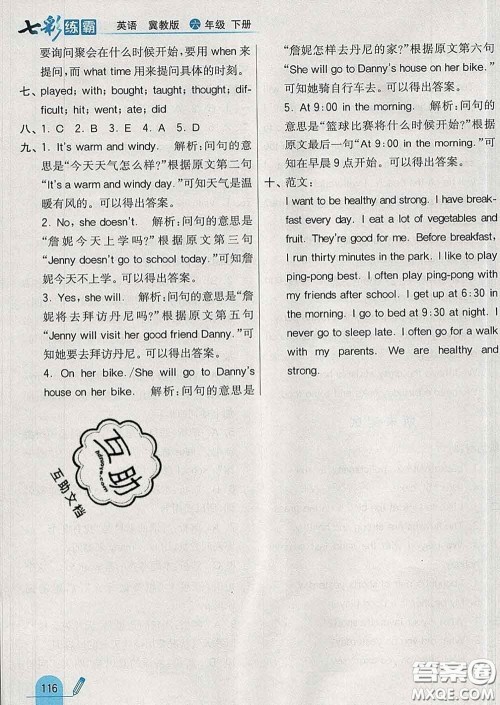 七彩练霸 英语 冀教版 六年级 下册
要询问聚会在什么时候开始，要用 when 来
提问，而 what time 用来提问具体的时刻。
七、played; with; bought; taught; thought; dif-
ficult; hit; went; ate; did
八、1. C 2. B 3. E 4. A 5. D
九、1. It's a warm and windy day. 解析：问句的
意思是“今天天气怎么样？”根据原文第二句
“It's a warm and windy day.”可知天气是温
暖有风的。可以得出答案。
2. No, she doesn't. 解析：问句的意思是
“詹妮今天上学吗？”根据原文第三句
“Jenny doesn't go to school today.”可知詹
妮今天不上学。可以得出答案。
3. Yes, she will. 解析：问句的意思是“詹
妮将去拜访丹尼吗？”根据原文第五句
“Jenny will visit her good friend Danny.”可
知她要去拜访丹尼。可以得出答案。
4. On her bike. /She will go to Danny's
house on her bike. 解析：问句的意思是
“詹妮怎样去丹尼的家？”根据原文第六句
“She will go to Danny's house on her bike.”
可知她骑自行车去。可以得出答案。
5. At 9:00 in the morning. 解析：问句的
意思是“篮球比赛将什么时候开始？”根据
原文最后一句“At 9:00 in the morning.”可
知在早晨 9 点开始。可以得出答案。
十、范文：
I want to be healthy and strong. I have break-
fast every day. I eat a lot of vegetables and
fruit. They're good for me. Before breakfast,
I run thirty minutes in the park. I like to play
ping-pong best. I often play ping-pong with
my friends after school. I get up at 6:30 in
the morning. I go to bed at 9:30 at night. I
never go to sleep late. I often go for a walk
with my parents. We are healthy and
strong.
互助
互助文档
116
答案圈
MXQE.COM